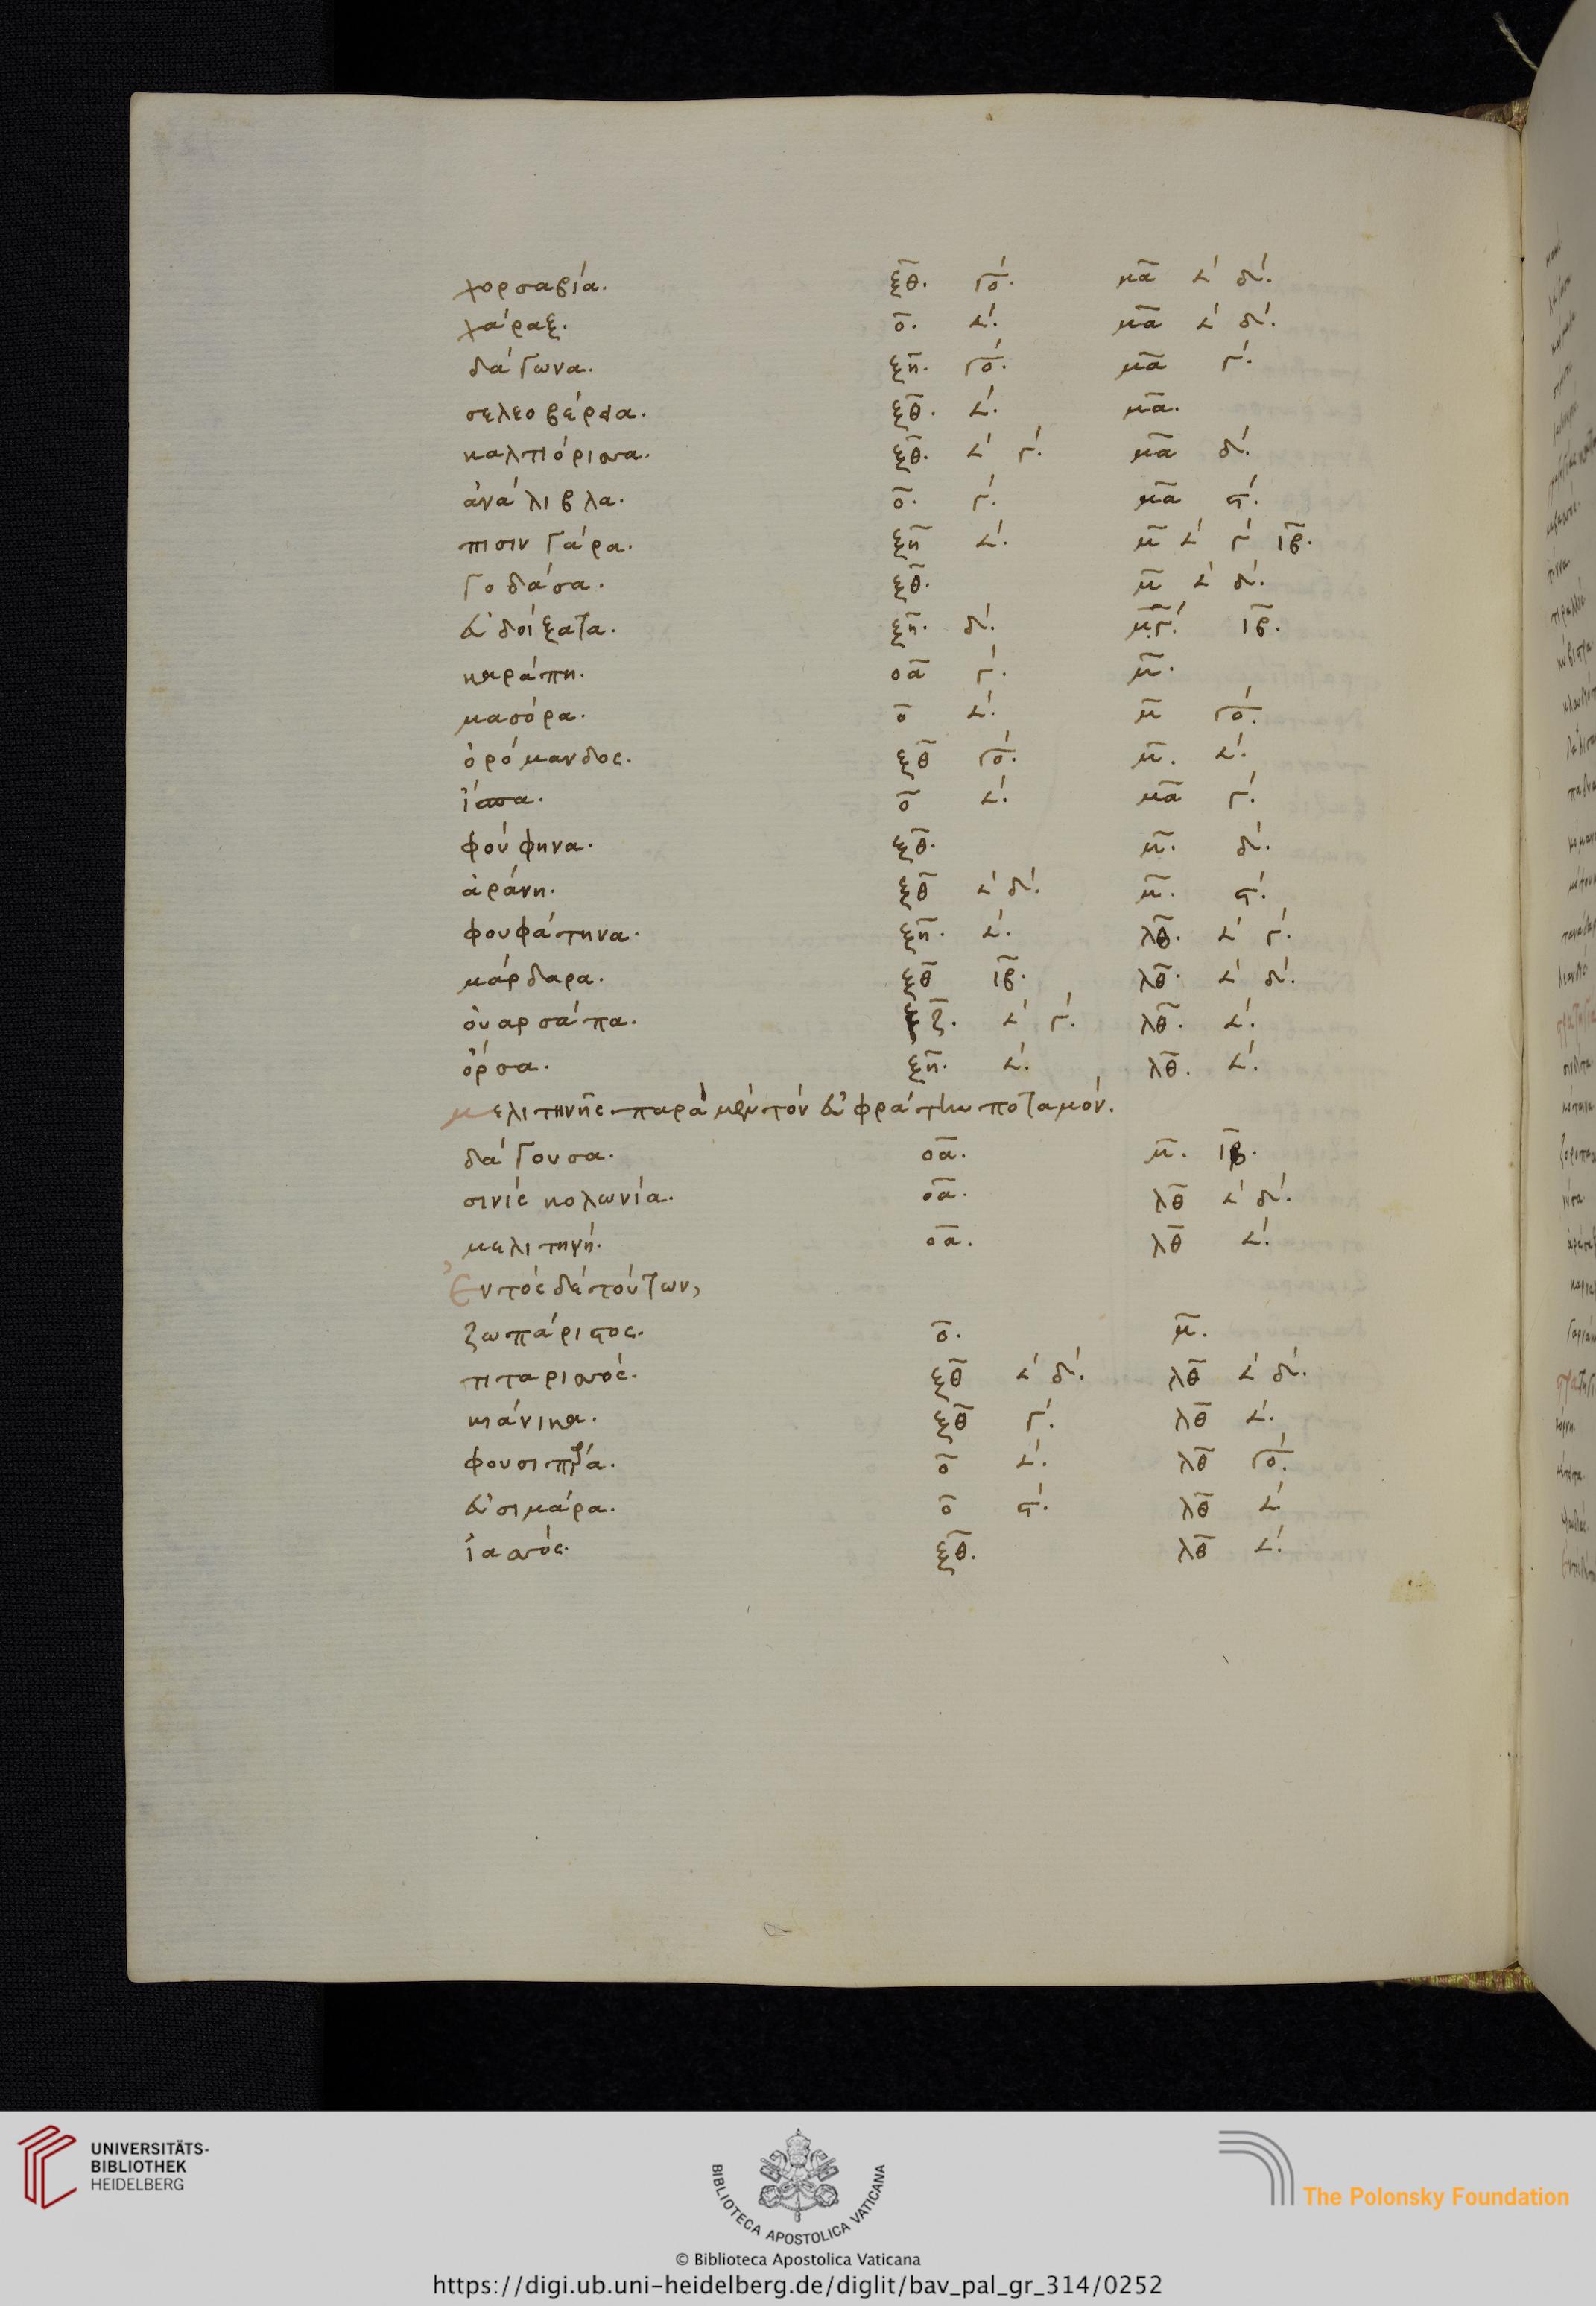 χορσαβία. ξθ. γο. μα 𐅵 δ.
χάραξ. ο. 𐅵. μα 𐅵 δ.
δάγωνα. ξη. γο. μα γ.
σελεοβέρεια. ξθ. 𐅵. μα.
καλτιόρισσα. ξθ. 𐅵 γ. μα δ.
ἀνάλιβλα. ο. γ. μα ϛ.
πισινγάρα. ξη 𐅵. μ 𐅵 γ ιβ.
γοδάσα. ξθ. μ 𐅵 δ.
εὐδοίξατα. ξη. δ. μ.γ. ιβ.
καράπη. οα γ. μ.
μασόρα. ο 𐅵. μ γο.
ὀρόμανδος. ξθ γο. μ. 𐅵.
ἴασσα. ο 𐅵. μα γ.
φούφηνα. ξθ. μ. δ.
ἀράνη. ξθ 𐅵 δ. μ. ϛ.
φουφάτηνα. ξη. 𐅵. λθ. 𐅵 γ.
μάρδαρα. ξθ ιβ. λθ. 𐅵 δ.
οὐαρσάπα. ξζ. 𐅵 γ. λθ. 𐅵.
ὄρσα. ξη. 𐅵. λθ. 𐅵.
μελιτηνῆς παρὰ μὲν τὸν εὐφράτην ποταμόν.
δάγουσα. οα. μ. ιβ.
σινίς κολωνία. οα. λθ 𐅵 δ.
μελιτηνή. οα. λθ 𐅵.
Ἐντὸς δὲ τούτων,
ζωπάριστος. ο. μ.
τιταρισσός. ξθ 𐅵 δ. λθ 𐅵 δ.
κιάνικα. ξθ γ. λθ 𐅵.
φουσιπαρά. ο 𐅵. λθ γο.
εὐσιμάρα. ο ϛ. λθ 𐅵
ἰασσός. ξθ. λθ 𐅵.
UNIVERSITÄTS-
BIBLIOTHEK
HEIDELBERG
BIBLIOTECA APOSTOLICA VATICANA
The Polonsky Foundation
© Biblioteca Apostolica Vaticana
https://digi.ub.uni-heidelberg.de/diglit/bav_pal_gr_314/0252